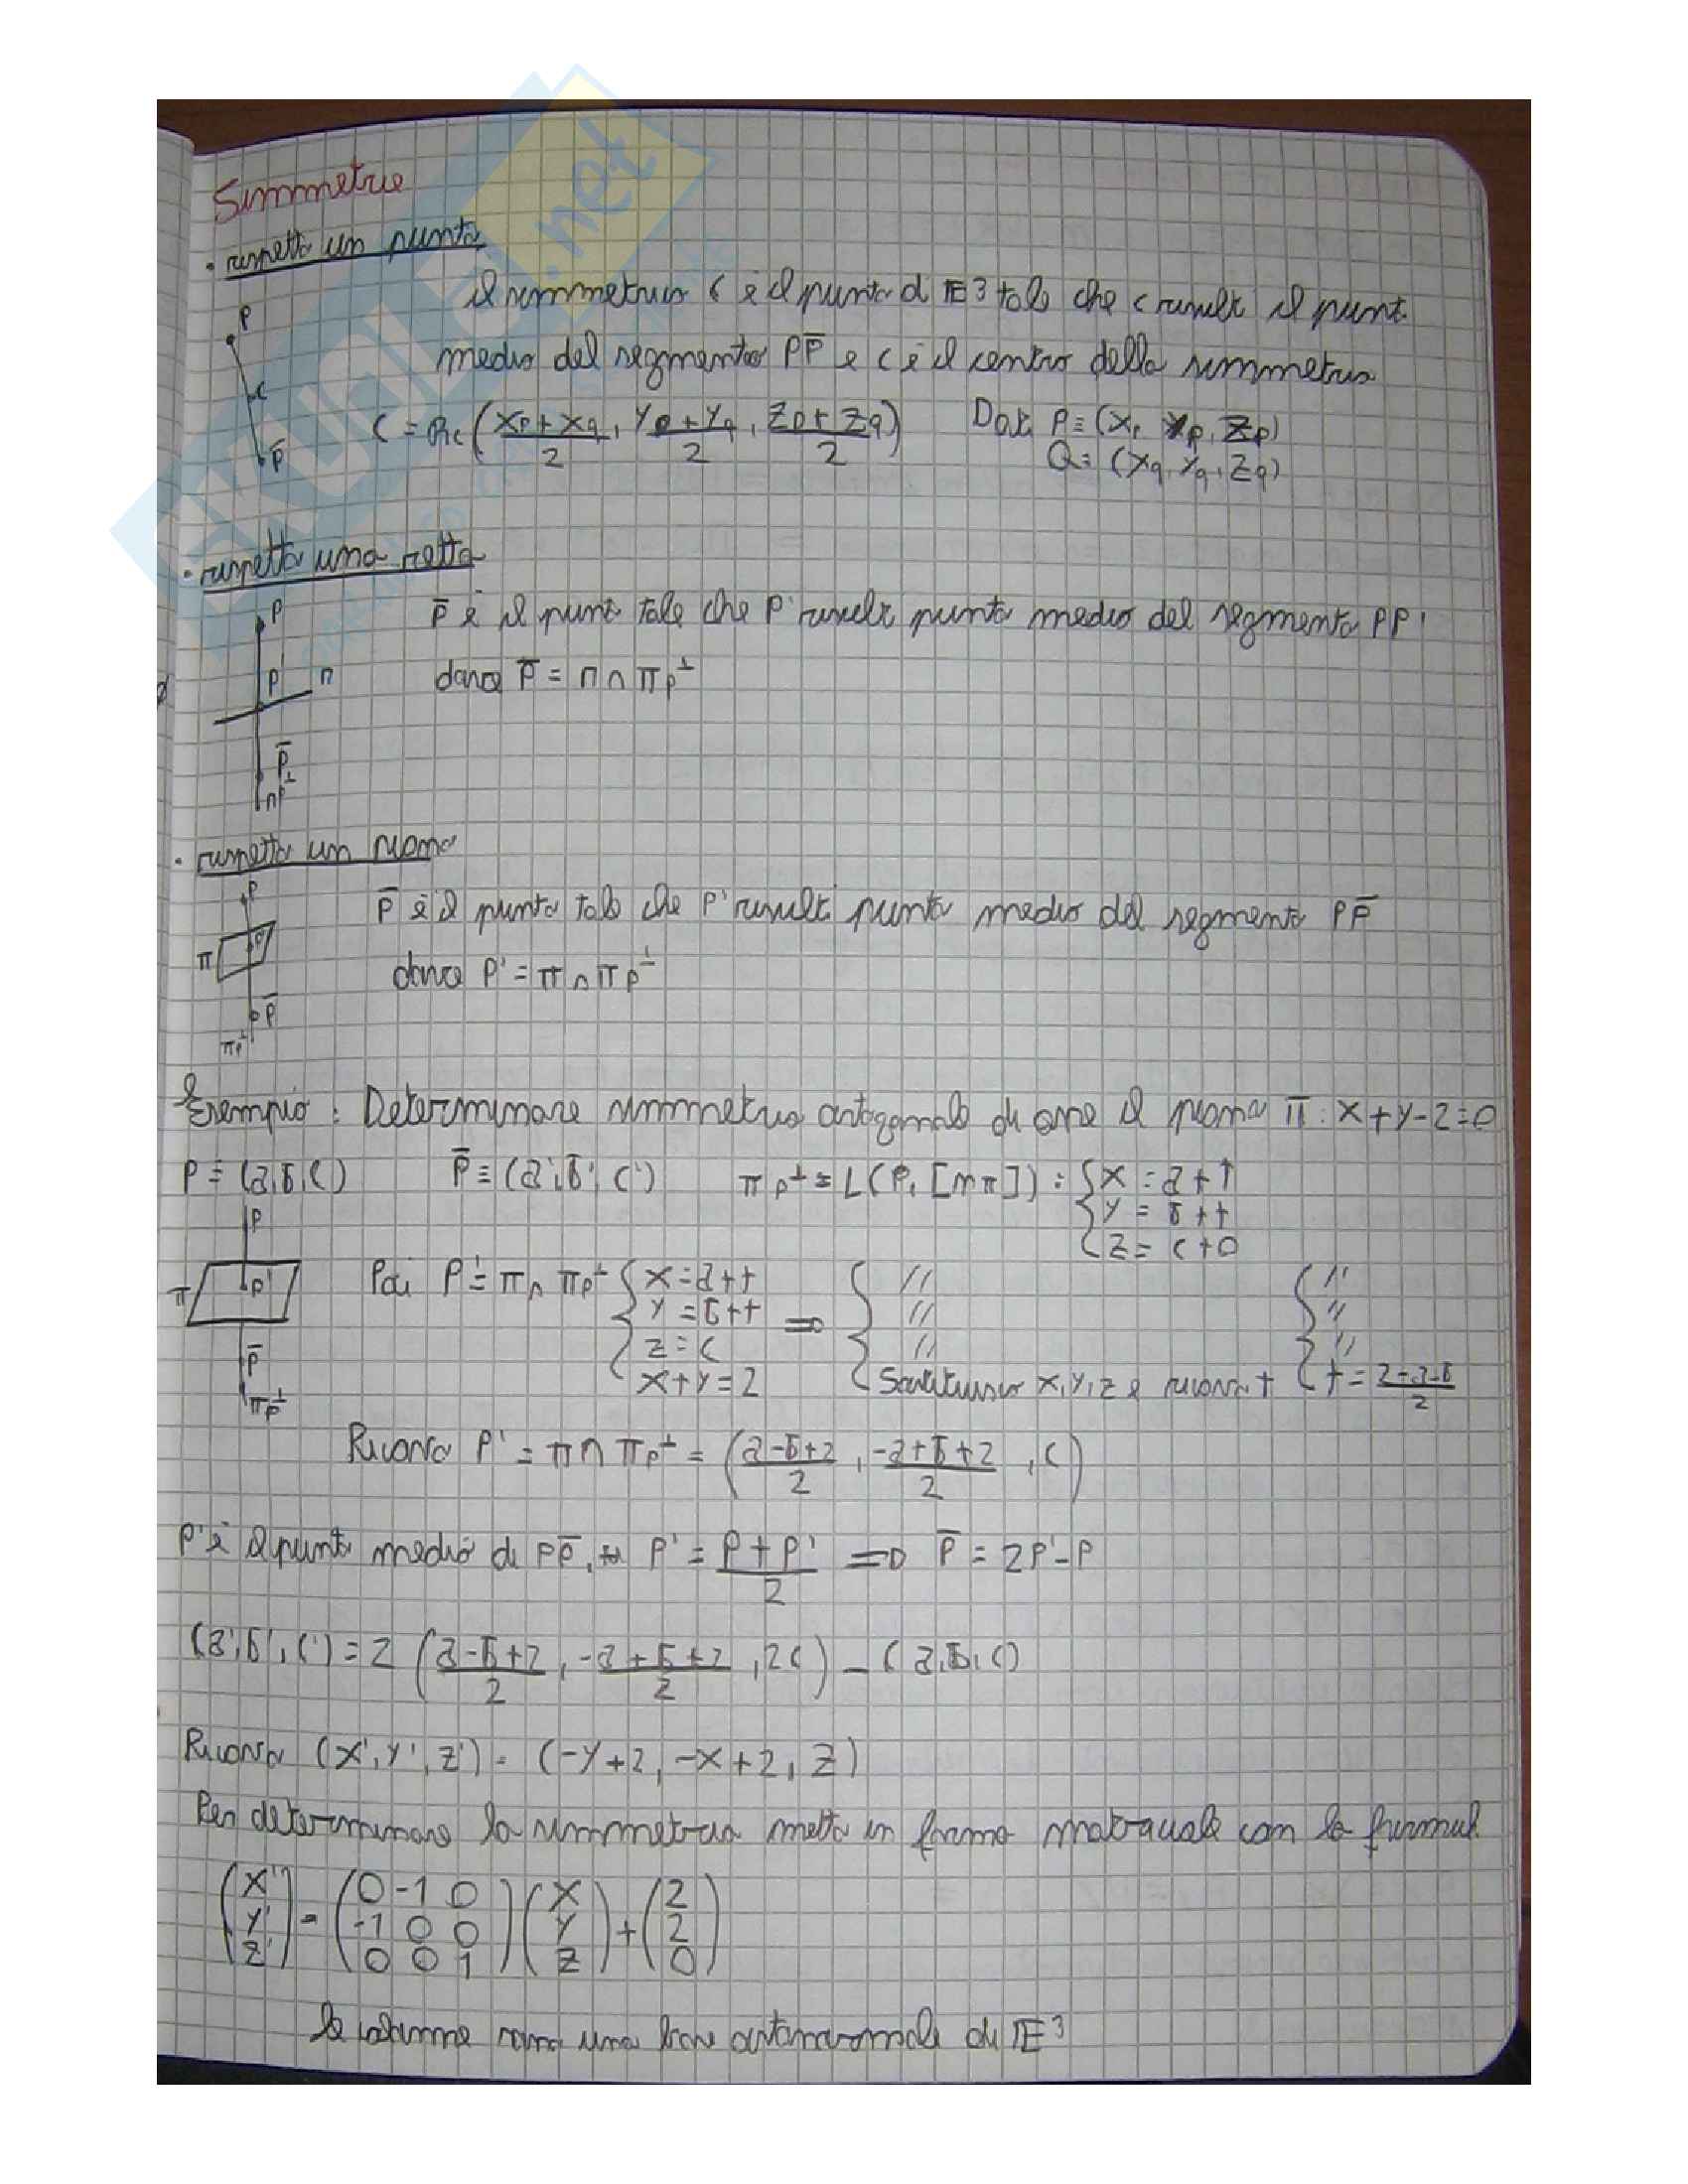 Simmetrie
· rispetto un punto
P
C
P̄
il simmetrico C è il punto di E³ tale che C risulti il punto
medio del segmento PP̄ e C è il centro della simmetria
C = Pic ( (xp + xq)/2 , (yp + yq)/2 , (zp + zq)/2 ) Dati P ≡ (xp, yp, zp)
Q ≡ (xq, yq, zq)
· rispetto una retta
P
P' r
P̄
rp⊥
P̄ è il punto tale che P' risulti punto medio del segmento PP'
dove P̄ = r ∩ πp⊥
· rispetto un piano
P
π P'
P̄
πp⊥
P̄ è il punto tale che P' risulti punto medio del segmento PP̄
dove P' = π ∩ πp⊥
Esempio : Determinare simmetria ortogonale di asse il piano π : x + y - 2 = 0
P ≡ (a, b, c) P̄ ≡ (a', b', c') πp⊥ = L(P, [nπ]) : { x = a + t
y = b + t
z = c + 0
P
π P'
P̄
πp⊥
Poi P' = π ∩ πp⊥ { x = a + t ⇒ { // { //
y = b + t // //
z = c // //
x + y = 2 Sostituisco x, y, z e ricavo t t = (2 - a - b)/2
Ricavo P' = π ∩ πp⊥ = ( (a - b + 2)/2 , (-a + b + 2)/2 , c )
P' è il punto medio di PP̄, P' = (P + P')/2 ⇒ P̄ = 2P' - P
(a', b', c') = 2 ( (a - b + 2)/2 , (-a + b + 2)/2 , 2c ) - (a, b, c)
Ricavo (x', y', z') = (-y + 2, -x + 2, z)
Per determinare la simmetria metto in forma matriciale con la formul.
(x') = (0 -1 0) (x) + (2)
(y') (-1 0 0) (y) (2)
(z') (0 0 1) (z) (0)
le colonne sono una base ortonormale di E³